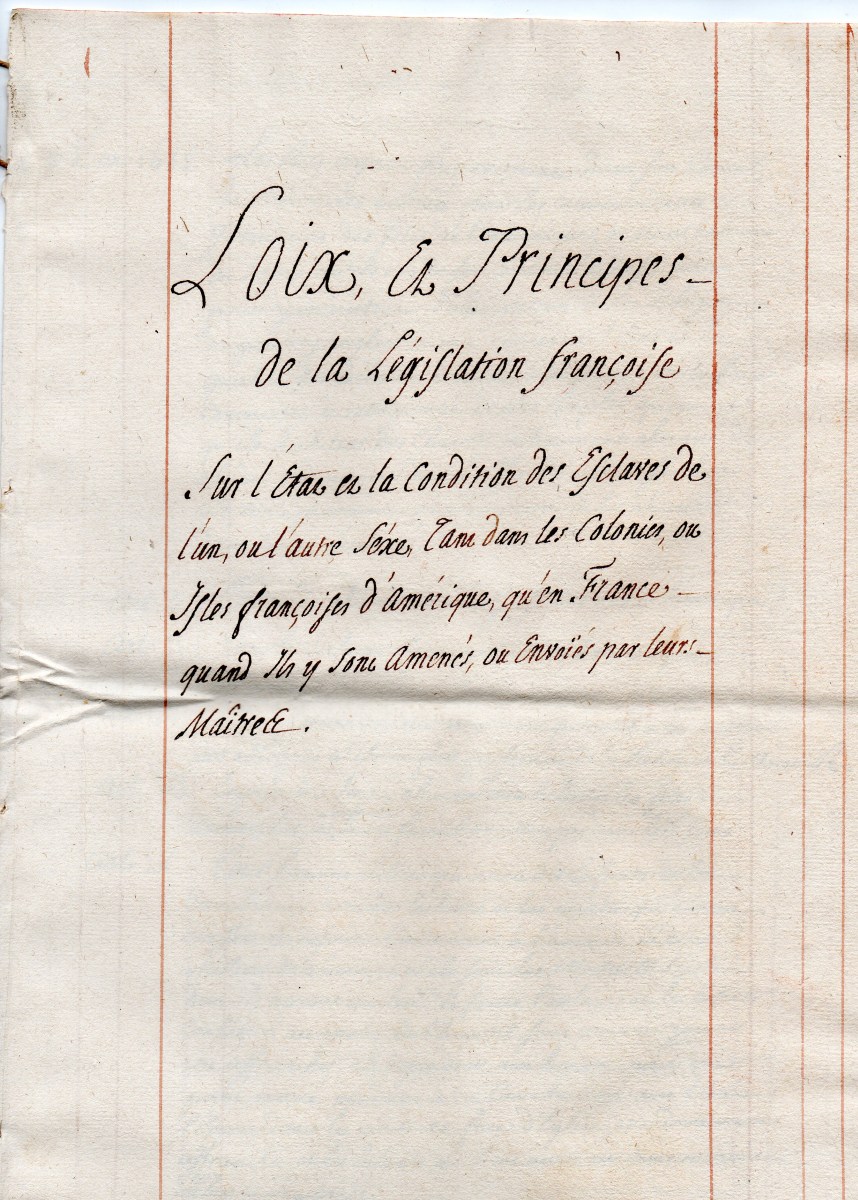 Loix, Et Principes
de la Législation françoise
Sur l'Etat et la Condition des Esclaves de
l'un, ou l'autre Séxe, Tant dans les Colonies, ou
Isles françoises d'Amérique, qu'en France
quand Ils y Sont Amenés, ou Envoïés par leurs
Maîtres.